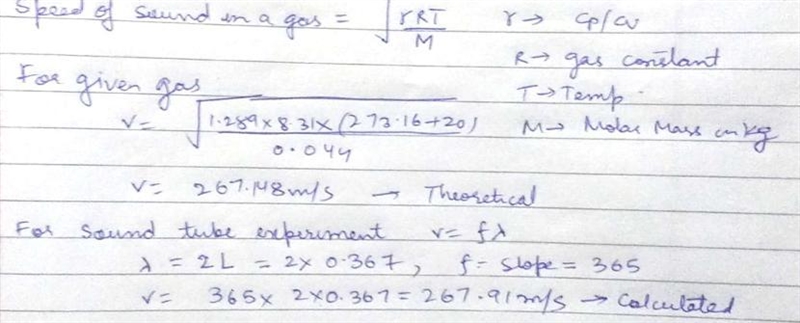 Speed of sound in a gas = √γRT/M γ→ Cp/Cv
R→ gas constant
For given gas T→Temp.
v= √1.289×8.31×(273.16+20)/0.044 M→ Molar Mass in kg
v= 267.148m/s → Theoretical
For sound tube experiment v= fλ
λ = 2L = 2× 0.367, f= slope = 365
v= 365× 2×0.367 = 267.91m/s → Calculated